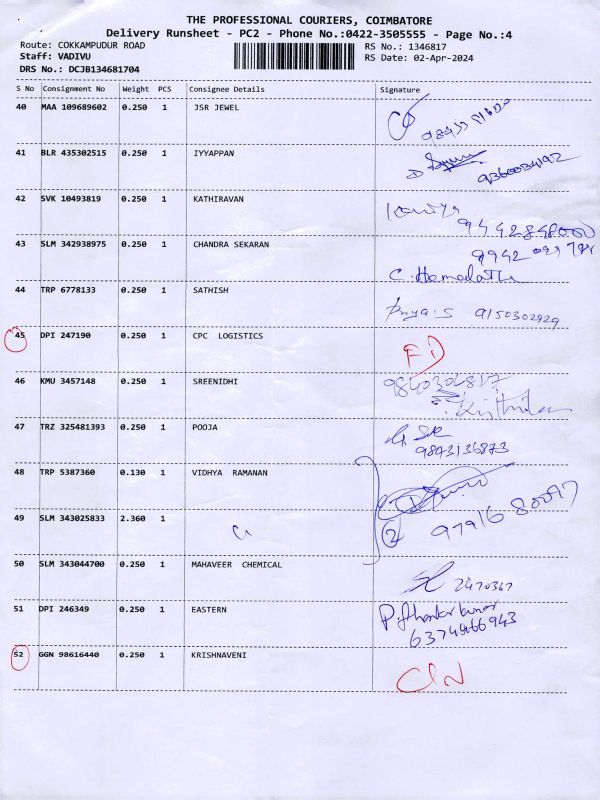 THE PROFESSIONAL COURIERS, COIMBATORE
Delivery Runsheet - PC2 - Phone No.:0422-3505555 - Page No.:4
Route: COKKAMPUDUR ROAD
RS No.: 1346817
Staff: VADIVU
RS Date: 02-Apr-2024
DRS No.: DCJB134681704
S No Consignment No Weight PCS Consignee Details Signature
40 MAA 109689602 0.250 1 JSR JEWEL
41 BLR 435302515 0.250 1 IYYAPPAN
9360034192
42 SVK 10493819 0.250 1 KATHIRAVAN
43 SLM 342938975 0.250 1 CHANDRA SEKARAN
9942
C. Hemalatha
44 TRP 6778133 0.250 1 SATHISH
Priya.S 9150302929
45 DPI 247190 0.250 1 CPC LOGISTICS
46 KMU 3457148 0.250 1 SREENIDHI
9840304817
47 TRZ 325481393 0.250 1 POOJA
9843136873
48 TRP 5387360 0.130 1 VIDHYA RAMANAN
49 SLM 343025833 2.360 1
2
97916 80097
50 SLM 343044700 0.250 1 MAHAVEER CHEMICAL
2470367
51 DPI 246349 0.250 1 EASTERN
6374466943
52 GGN 98616440 0.250 1 KRISHNAVENI